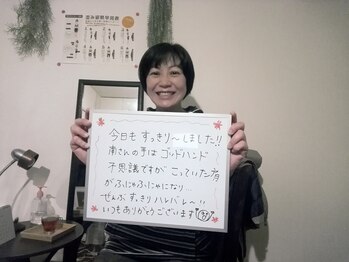 今日も すっきり〜しました!!
南さんの手は ゴッドハンド
不思議ですが こっていた肩
がふにゃふにゃになり...
ぜんぶ すっきりハレバレ〜!!
いつもありがとうございます